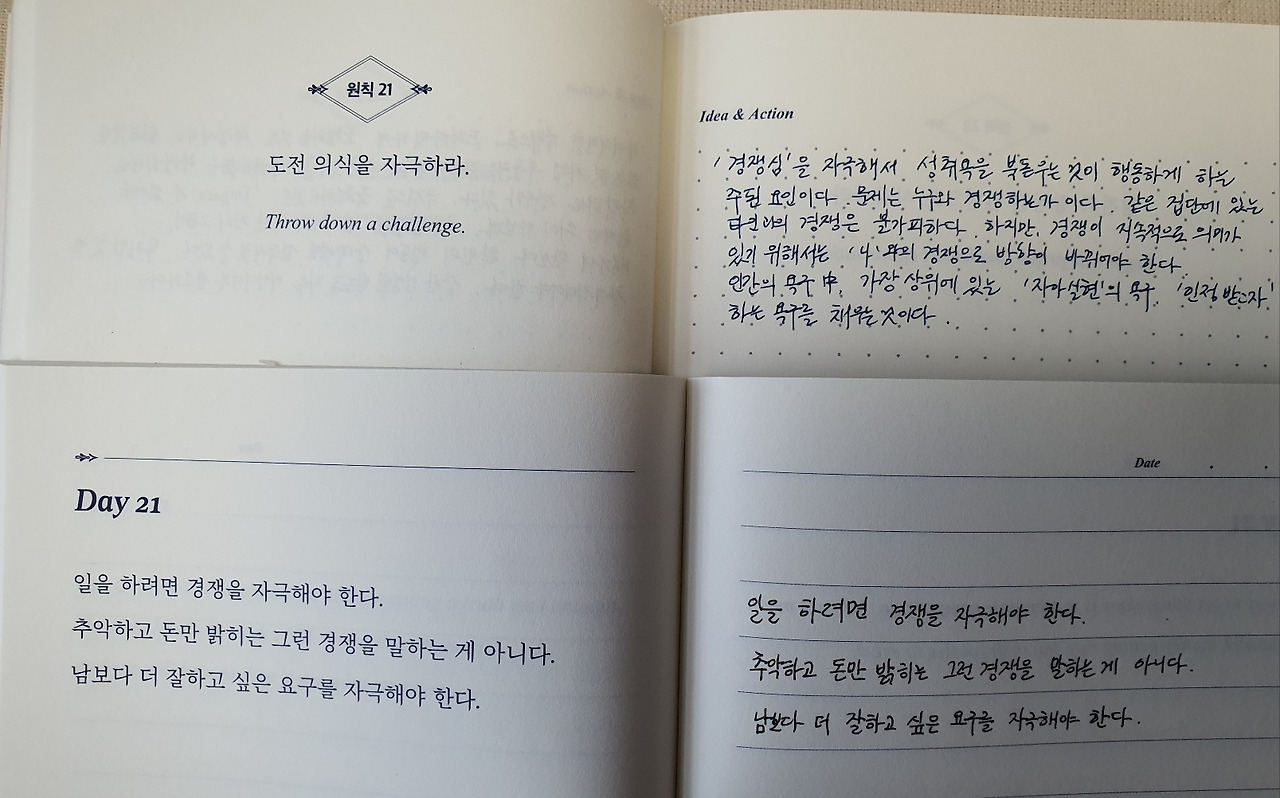 원칙 21
도전 의식을 자극하라.
Throw down a challenge.
Idea & Action
'경쟁심'을 자극해서 성취욕을 북돋우는 것이 행동하게 하는
주된 요인이다. 문제는 누구와 경쟁하는가 이다. 같은 집단에 있는
타인과의 경쟁은 불가피하다. 하지만, 경쟁이 지속적으로 의미가
있기 위해서는 '나'와의 경쟁으로 방향이 바뀌어야 한다.
인간의 욕구 中, 가장 상위에 있는 '자아실현'의 욕구, '인정 받고자'
하는 욕구를 채우는 것이다.
Day 21
일을 하려면 경쟁을 자극해야 한다.
추악하고 돈만 밝히는 그런 경쟁을 말하는 게 아니다.
남보다 더 잘하고 싶은 요구를 자극해야 한다.
Date . .
일을 하려면 경쟁을 자극해야 한다.
추악하고 돈만 밝히는 그런 경쟁을 말하는 게 아니다.
남보다 더 잘하고 싶은 요구를 자극해야 한다.